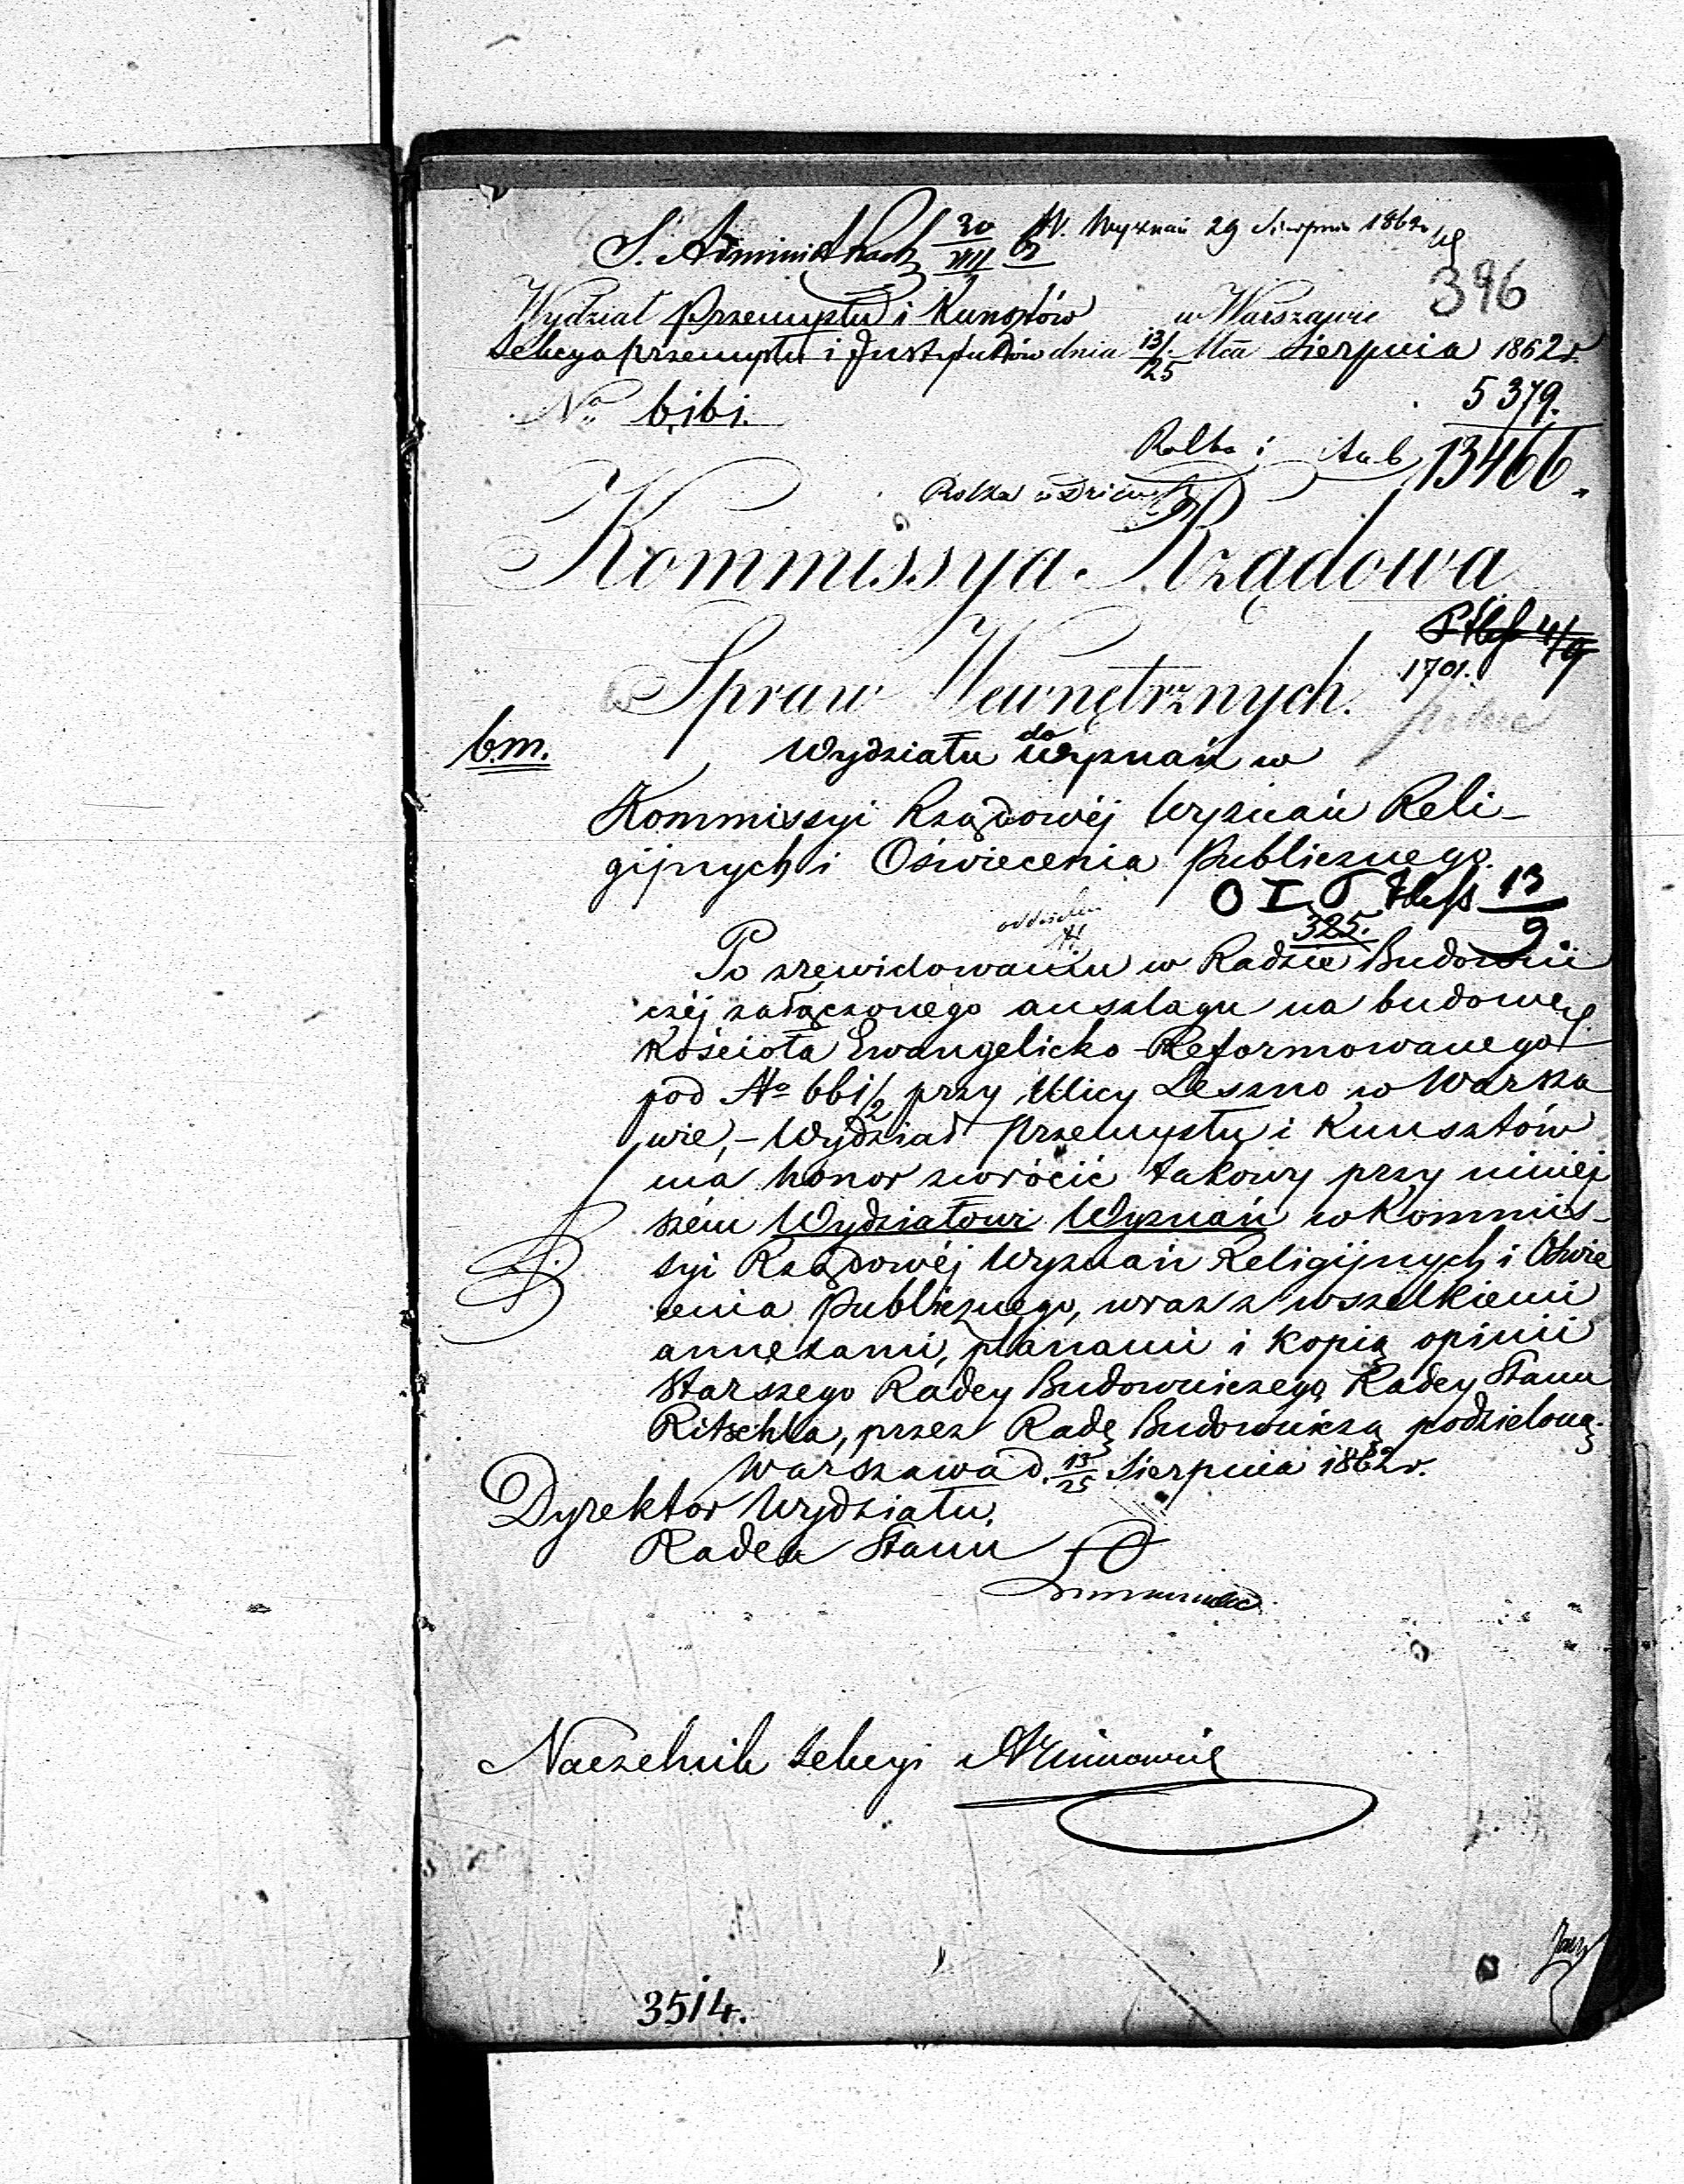 S. Administrac 30/VIII 62 W. Wyznań 29 Sierpnia 1862 r
396
Wydział Przemysłu i Kunsztów w Warszawie
Sekcya przemysłu i Instytutów dnia 13/25 Mca Sierpnia 1862 r.
No 6,161. 5379.
Rolka i 13466.
Rolka
Kommissya Rządowa
Spraw Wewnętrznych.
4/9
1701.
b.m.
do
Wydziału Wyznań w
Kommissyi Rządowéj Wyznań Reli-
gijnych i Oświecenia Publicznego.
13/9
325.
Po zrewidowaniu w Radzie Budowni
czéj załączonego anszlagu na budowę
Kościoła Ewangelicko-Reformowanego
pod No 661/2 przy Ulicy Leszno w Warsza
wie, – Wydział Przemysłu i Kunsztów
ma honor zwrócić takowy przy niniej
szém Wydziałowi Wyznań w Kommis-
syi Rządowéj Wyznań Religijnych i Oświe
cenia Publicznego, wraz z wszelkiemi
annexami, planami i kopią opinii
Starszego Radcy Budowniczego Radcy Stanu
Ritschla, przez Radę Budowniczą podzieloną.
Warszawa d. 13/25 Sierpnia 1862 r.
Dyrektor Wydziału,
Radca Stanu
Naczelnik Sekcyi
3514.